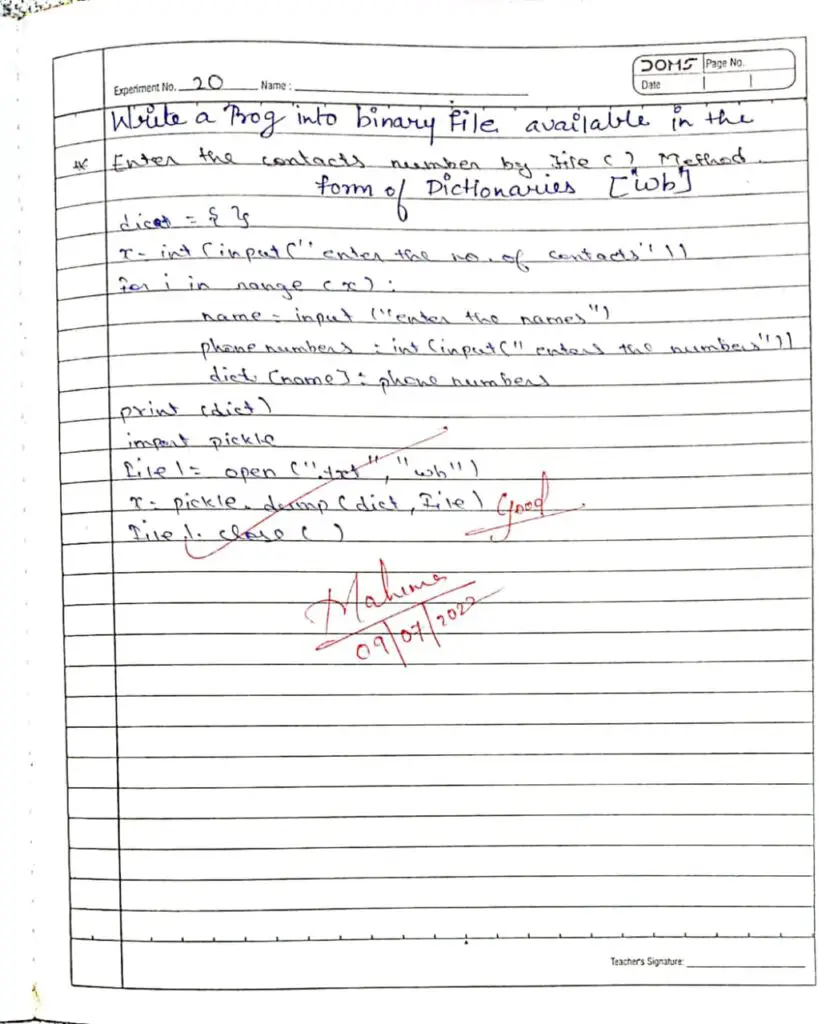 DOMS Page No.
Experiment No. 20 Name : Date
Write a Prog into binary File available in the
Enter the contacts number by File ( ) Method.
form of Dictionaries ["wb"]
dict = { }
x= int (input (" enter the no. of contacts" ))
for i in range (x) :
name = input ("enter the names")
phone numbers = int (input (" enters the numbers"))
dict [name] = phone numbers
print (dict)
import pickle
File 1= open (".txt", "wb")
x= pickle. dump (dict, File) Good
File 1. close ( )
Mahima
09/07/2022
Teacher's Signature: